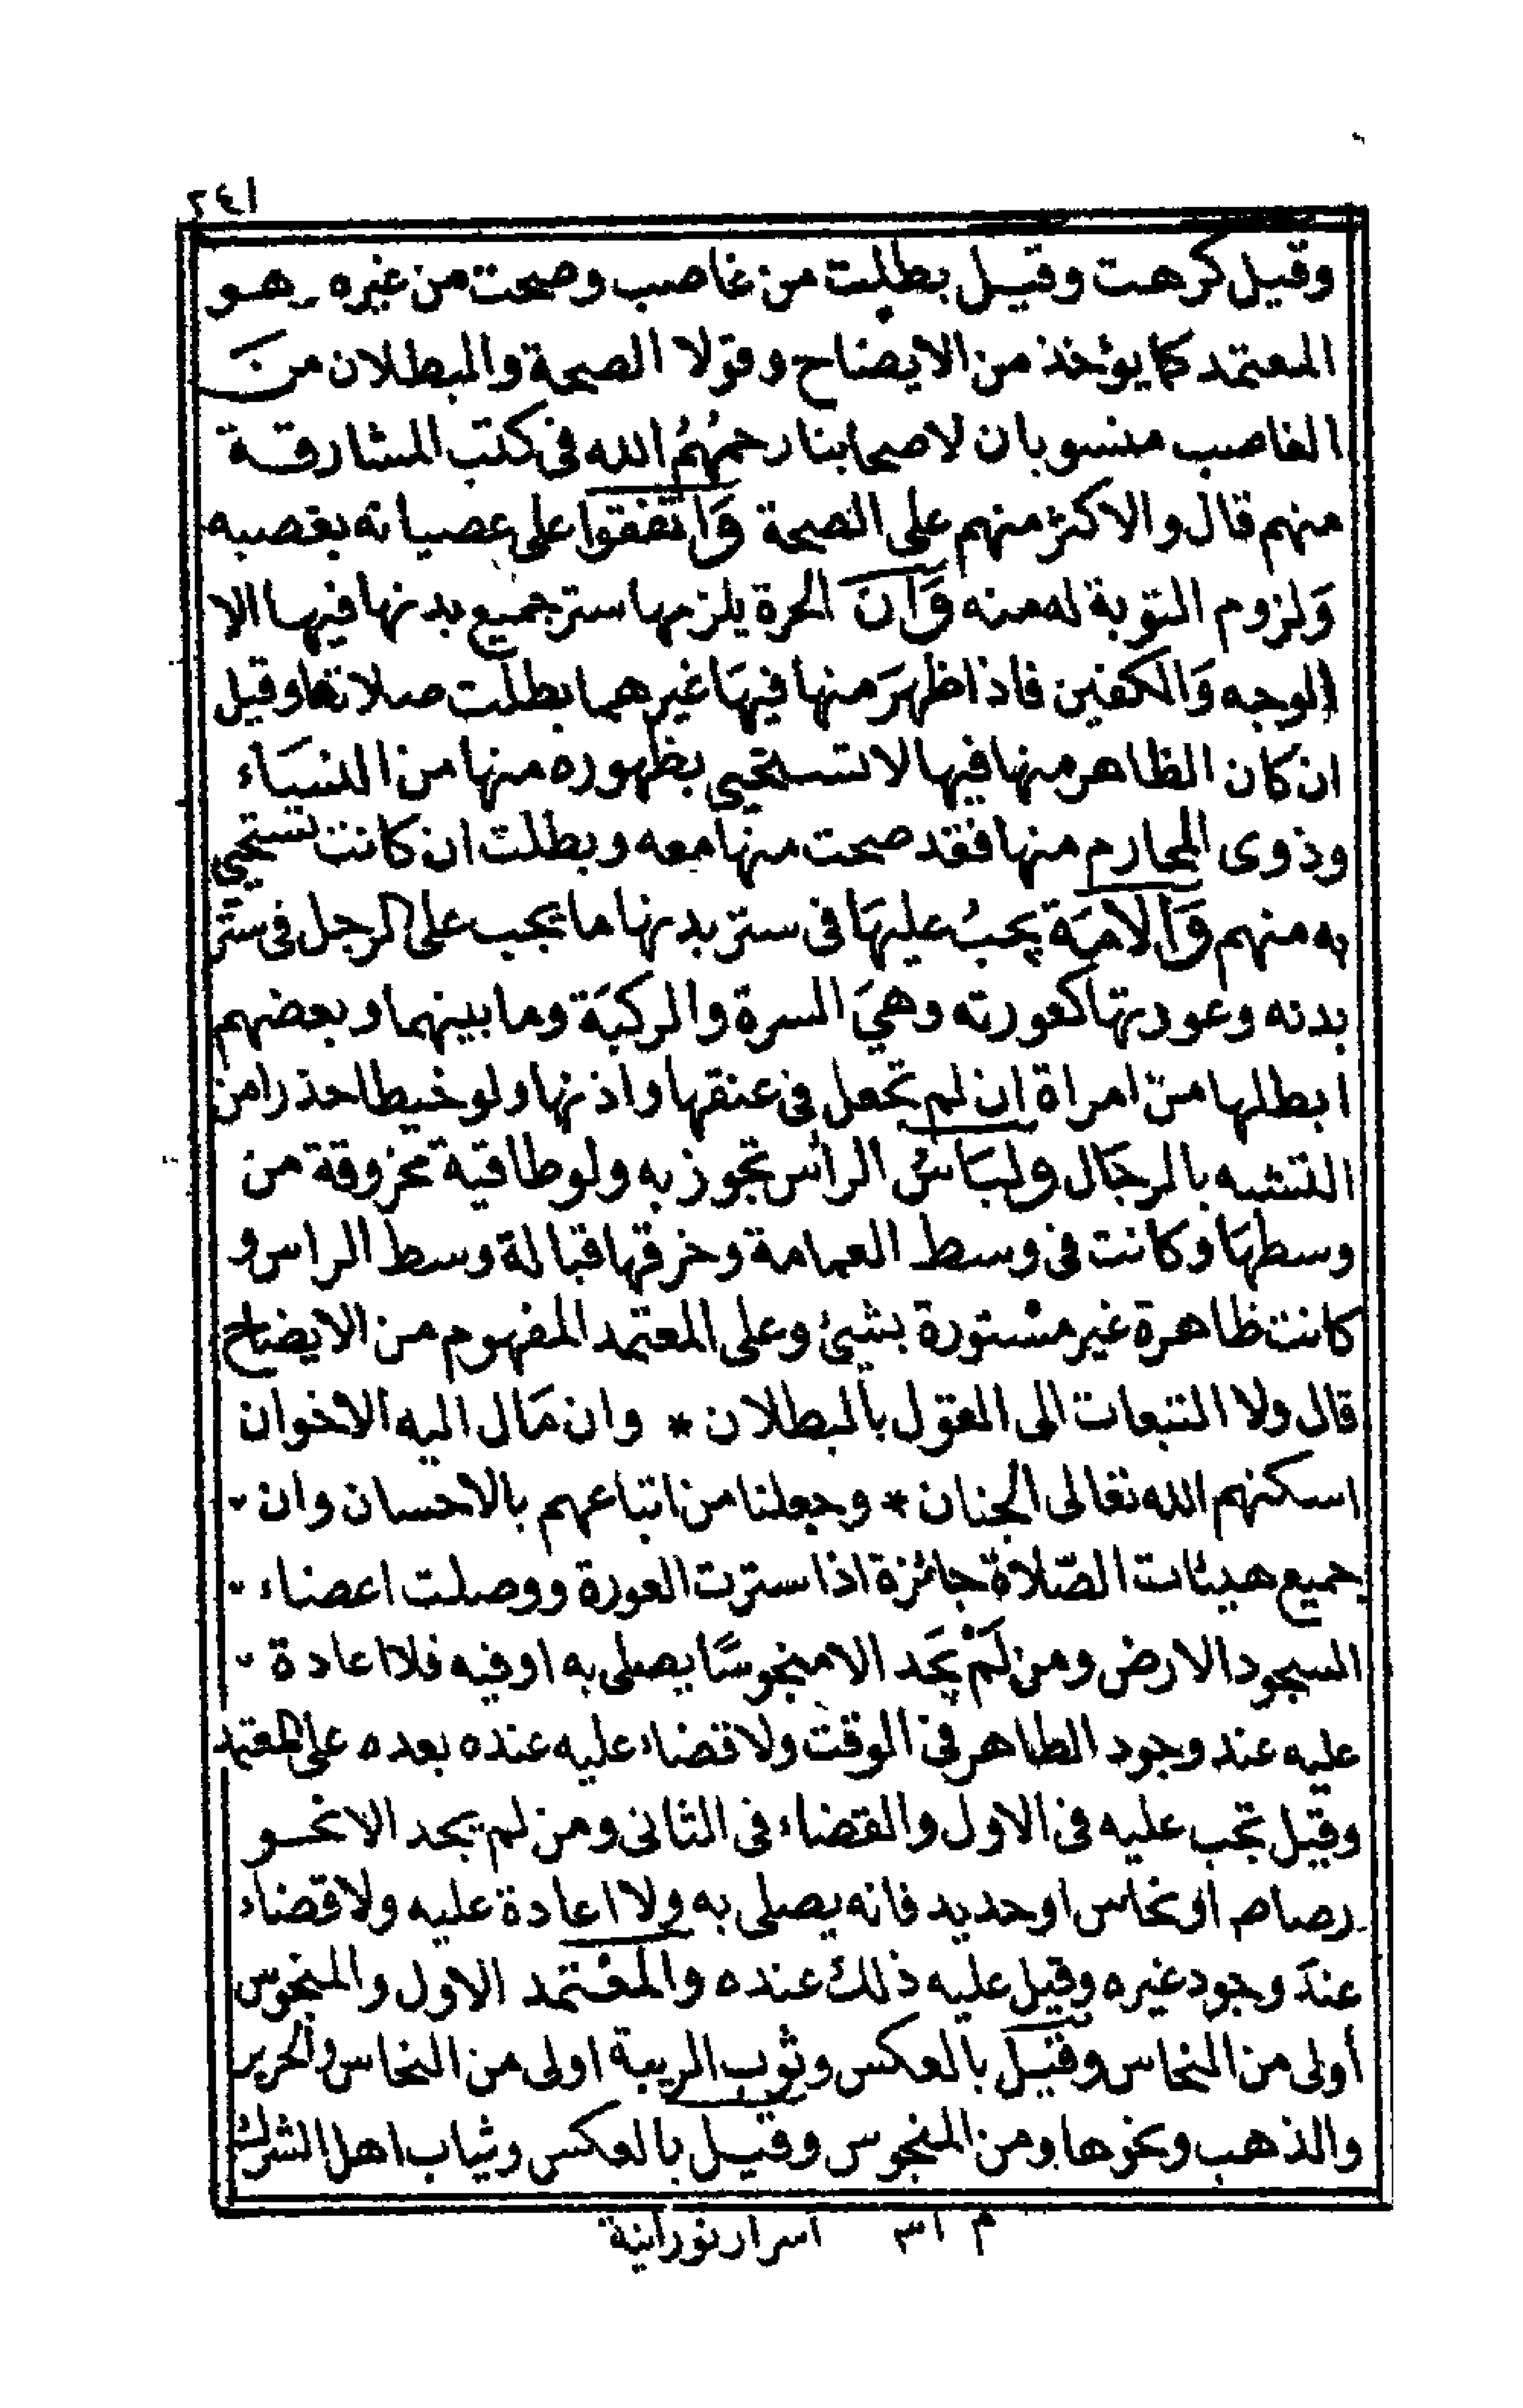 ٢٤١
وقيل كرهت وقيل بطلت من غاصب وصحت من غيره وهو
المعتمد كما يؤخذ من الايضاح وقولا الصحة والبطلان من
الغاصب منسوبان لاصحابنا رحمهُمُ الله فى كتب المشارقة
منهم قال والاكثر منهم على الصحة وَاتفقوا على عصيانه بغصبه
وَلزوم التوبة له منه وَان الحرة يلزمها ستر جميع بدنها فيها الا
الوجه وَالكفين فاذا ظهرَ منها فيهَا غيرهما بطلت صلاتها وقيل
ان كان الظاهر منها فيها لا تستحيى بظهوره منها من النسَاء
وذوى المحارم منها فقد صحت منها معه وبطلت ان كانت تستحيى
به منهم وَالامَة يجبُ عليهَا فى ستر بدنها ما يجب على الرجل فى ستر
بدنه وعورتها كعورته وهىَ السرة والركبَة وما بينهما وبعضهم
ابطلها من امراة ان لم تجعل فى عنقها واذنها ولو خيطا حذرا من
التشبه بالرجَال ولبَاسُ الراس تجوز به ولو طاقية مخروقة من
وسطهَا وكانت فى وسط العمامة وخرقها قبالة وسط الراس و
كانت ظاهرة غير مستورة بشئ وعلى المعتمد المفهوم من الايضاح
قال ولا التبعات الى القول بالبطلان * وان مَال اليه الاخوان
اسكنهم الله تعالى الجنان * وجعلنا من اتباعهم بالاحسان وان
جميع هيئات الصّلاة جائزة اذا سترت العورة ووصلت اعضاء
السجود الارض ومن لَمْ يَجَد الا منجوسًا يصلى به اوفيه فلا اعادة
عليه عند وجود الطاهر فى الوقت ولا قضاء عليه عنده بعده على المعتمد
وقيل تجب عليه فى الاول والقضاء فى الثانى ومن لم يجد الا نحو
رصاص او نحاس او حديد فانه يصلى به ولا اعادة عليه ولا قضاء
عندَ وجود غيره وقيل عليه ذلك عنده والمعْتمد الاول والمنجوس
أولى من النحاس وقيل بالعكس وثوب الريبة اولى من النحاس والحرير
والذهب ونحوها ومن المنجوس وقيل بالعكس وثياب اهل الشرك
م ٣١ اسرار نورانية